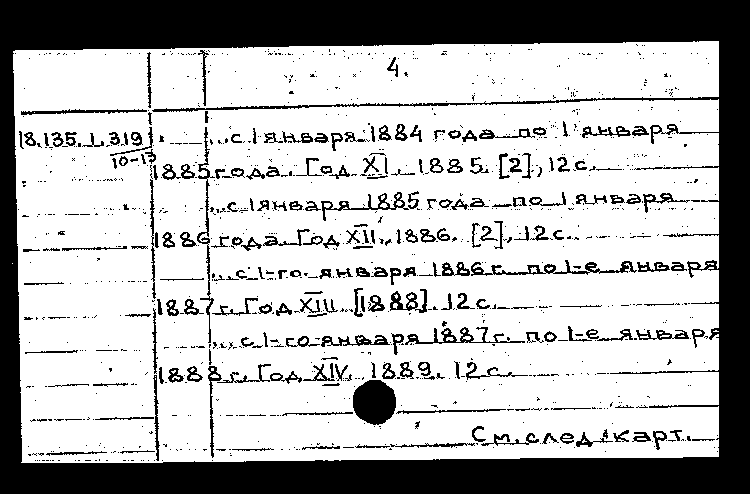 4.
18.135.1.319 ...с 1 января 1884 года по 1 января
10-13
1885 года. Год XI. 1885. [2], 12 с.
...с 1 января 1885 года по 1 января
1886 года. Год XII. 1886. [2], 12 с.
...с 1-го января 1886 г. по 1-е января
1887 г. Год XIII. [1888]. 12 с.
...с 1-го января 1887 г. по 1-е января
1888 г. Год XIV. 1889. 12 с.
См. след. карт.